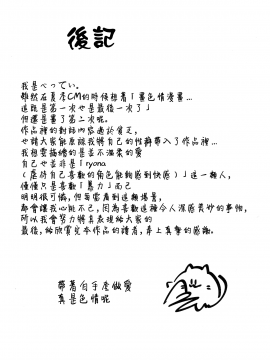 後記
我是べってぃ。
雖然在夏季CM的時候想著「畫色情漫畫…
這既是第一次也是最後一次了」
但還是畫了第二次呢。
作品裡的對話內容過於貧乏,
也請大家能原諒我將自己的性癖帶入了作品裡…
我想要描繪的是並不溫柔的愛
自己也並非是「ryona
(虐待自己喜歡的角色能夠感到快感)」這一類人,
僅僅只是喜歡「暴力」而已
明明很可憐,但每當看到這種場景,
都會讓我心跳不已,因為喜歡這種令人深感美妙的事物,
所以我會努力將其表現給大家的
最後,給欣賞完本作品的讀者,奉上真摯的感謝。
帶著白手套做愛
真是色情呢